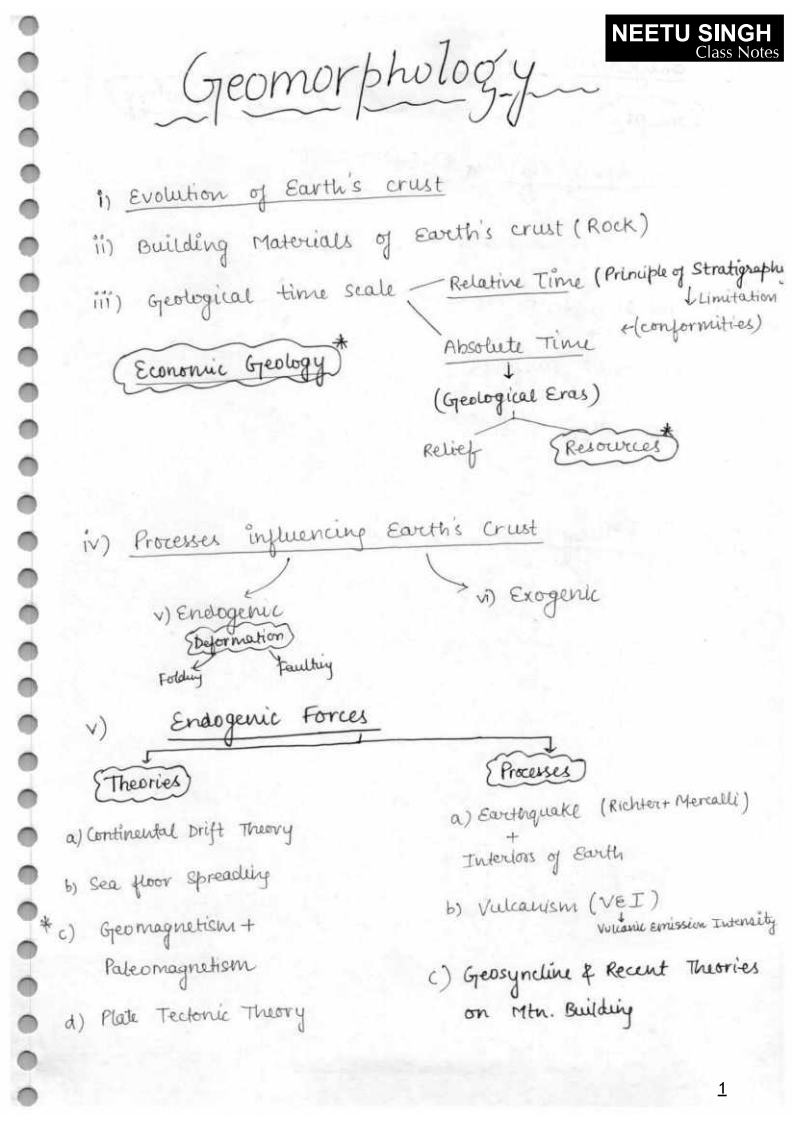 NEETU SINGH
Class Notes
Geomorphology
i) Evolution of Earth's crust
ii) Building Materials of Earth's crust (Rock)
iii) Geological time scale
Relative Time (Principle of Stratigraphy
↓ Limitation
←(conformities)
Absolute Time
↓
(Geological Eras)
Relief
Resources *
Economic Geology *
iv) Processes influencing Earth's Crust
v) Endogenic
Deformation
Folding
Faulting
vi) Exogenic
v) Endogenic Forces
Theories
a) Continental Drift Theory
b) Sea floor spreading
* c) Geomagnetism +
Paleomagnetism
d) Plate Tectonic Theory
Processes
a) Earthquake (Richter + Mercalli)
+
Interiors of Earth
b) Vulcanism (VEI)
↓
Vulcanic Emission Intensity
c) Geosyncline & Recent Theories
on Mtn. Building
1